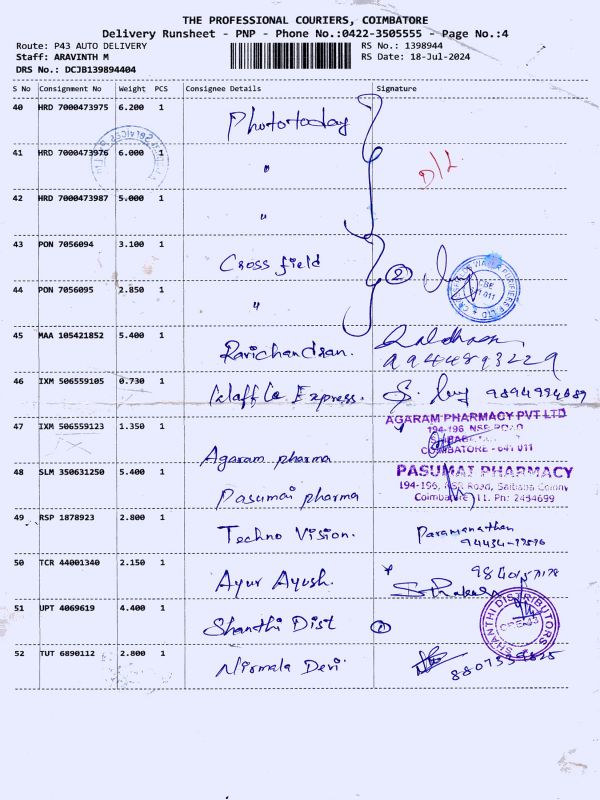 THE PROFESSIONAL COURIERS, COIMBATORE
Delivery Runsheet - PNP - Phone No.:0422-3505555 - Page No.:4
Route: P43 AUTO DELIVERY
Staff: ARAVINTH M
DRS No.: DCJB139894404
RS No.: 1398944
RS Date: 18-Jul-2024
S No Consignment No Weight PCS Consignee Details Signature
40 HRD 7000473975 6.200 1 Phototoday
41 HRD 7000473976 6.000 1 "
42 HRD 7000473987 5.000 1 "
43 PON 7056094 3.100 1 Cross field
44 PON 7056095 2.850 1 " 2
45 MAA 105421852 5.400 1 Ravichandran. 9944893229
46 IXM 506559105 0.730 1 Waffle Express. 9894994689
47 IXM 506559123 1.350 1 Agaram pharma
AGARAM PHARMACY PVT LTD
194-196 NSR ROAD
COIMBATORE - 641 011
48 SLM 350631250 5.400 1 Pasumai pharma
PASUMAI PHARMACY
194-196, NSR Road, Saibaba Colony
Coimbatore 11. Ph: 2454699
49 RSP 1878923 2.800 1 Techno Vision. Paramanathan
50 TCR 44001340 2.150 1 Ayur Ayush.
51 UPT 4069619 4.400 1 Shanthi Dist 1
SHANTHI DISTRIBUTORS
CBE-43
52 TUT 6890112 2.800 1 Nirmala Devi